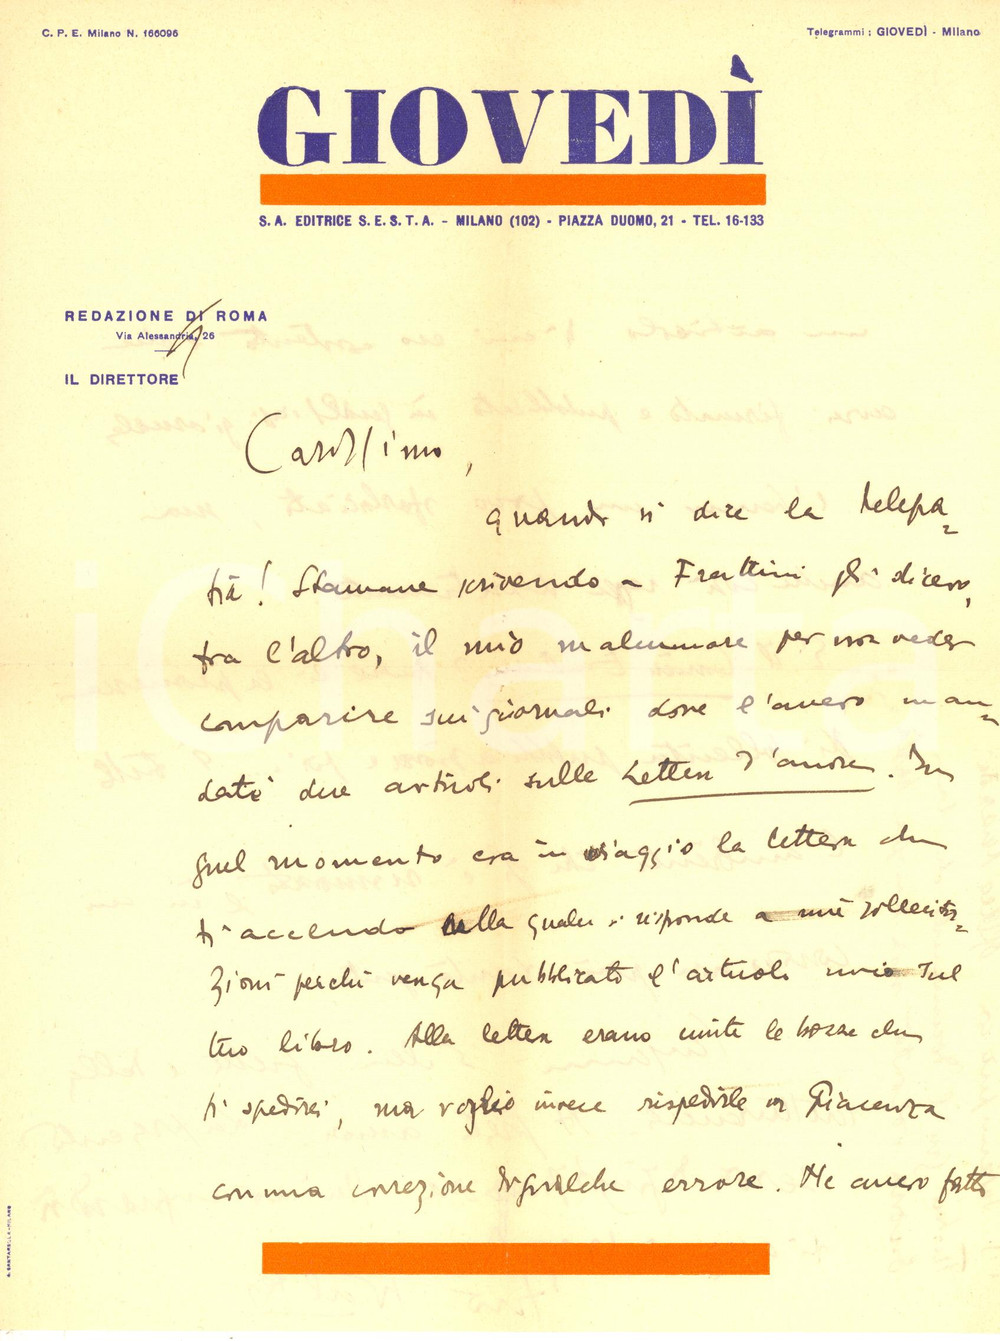 C. P. E. Milano N. 166096
Telegrammi : GIOVEDÌ - Milano
GIOVEDÌ
S. A. EDITRICE S. E. S. T. A. - MILANO (102) - PIAZZA DUOMO, 21 - TEL. 16-133
REDAZIONE DI ROMA
Via Alessandria, 26
IL DIRETTORE
Carissimo,
quando si dice la telepa-
tia! Stamane scrivendo a Frattini gli dicevo,
tra l'altro, il mio malumore per non veder
comparire sui giornali dove l'avevo man-
dati due articoli sulle Lettere d'amore. In
quel momento era in viaggio la lettera che
ti accendo nella quale si risponde a mie sollecita-
zioni perché venga pubblicato l'articolo mio sul
tuo libro. Alla lettera erano unite le bozze che
ti spedirei, ma voglio invece rispedirle a Piacenza
con una correzione di qualche errore. Ne avevo fatto
iCharta